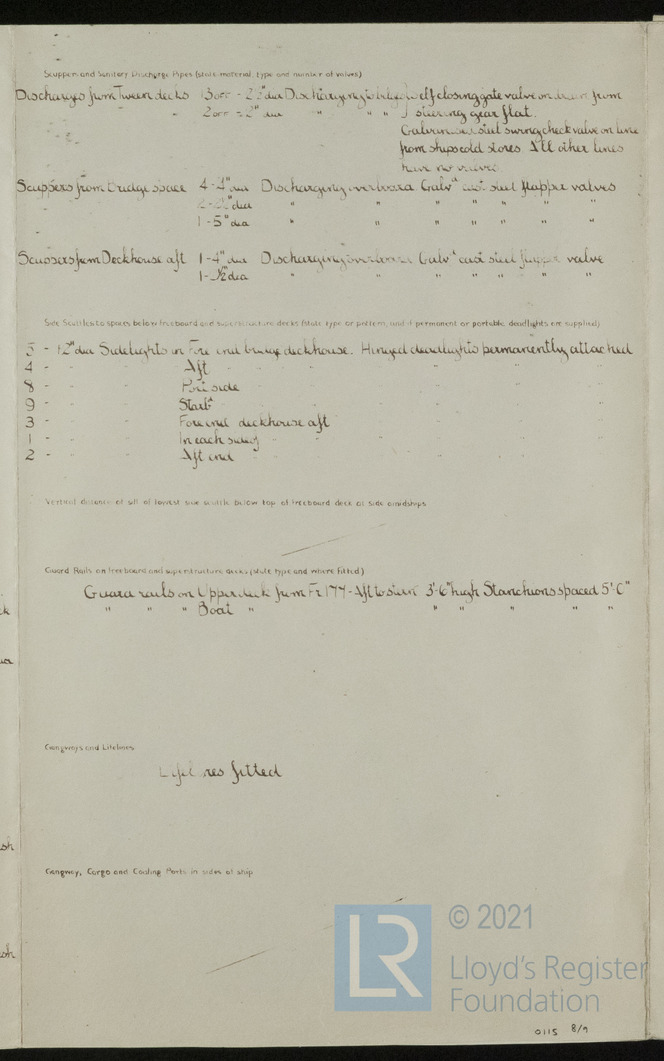 Scuppers and Sanitary Discharge Pipes (state material, type and number of valves)
Discharges from Tween decks 13 off - 2½" dia Discharging to bilges self closing gate valve on drain from
2 off - 2" dia " " " steering gear flat.
Galvanised steel swing check valve on line
from ships cold stores. All other lines
have no valves
Scuppers from Bridge space 4-4" dia Discharging overboard. Galvd cast steel flapper valves
dia " " " " " " "
1-5" dia " " " " " " "
Scuppers from Deckhouse aft 1-4" dia Discharging overboard Galvd cast steel flapper valve
dia " " " " " " "
Side Scuttles to spaces below freeboard and superstructure decks (state type or pattern, and if permanent or portable deadlights are supplied)
5 - 12" dia Sidelights in Fore end bridge deckhouse. Hinged deadlights permanently attached
4 - " " Aft " " " " "
8 - " " Port side " " "
9 - " " Starbd " " "
3 - " " Fore end deckhouse aft " " "
1 - " " In each side of " " "
2 - " " Aft end " " "
Vertical distance of sill of lowest side scuttle below top of freeboard deck at side amidships
Guard Rails on freeboard and superstructure decks (state type and where fitted)
Guard rails on Upper deck from Fr 177 - Aft to stern 3'-6" high Stanchions spaced 5'-0"
" " " Boat " " " " " "
Gangways and Lifelines
Lifelines fitted
Gangway, Cargo and Coaling Ports in sides of ship
LR
© 2021
Lloyd's Register
Foundation
0115 8/9